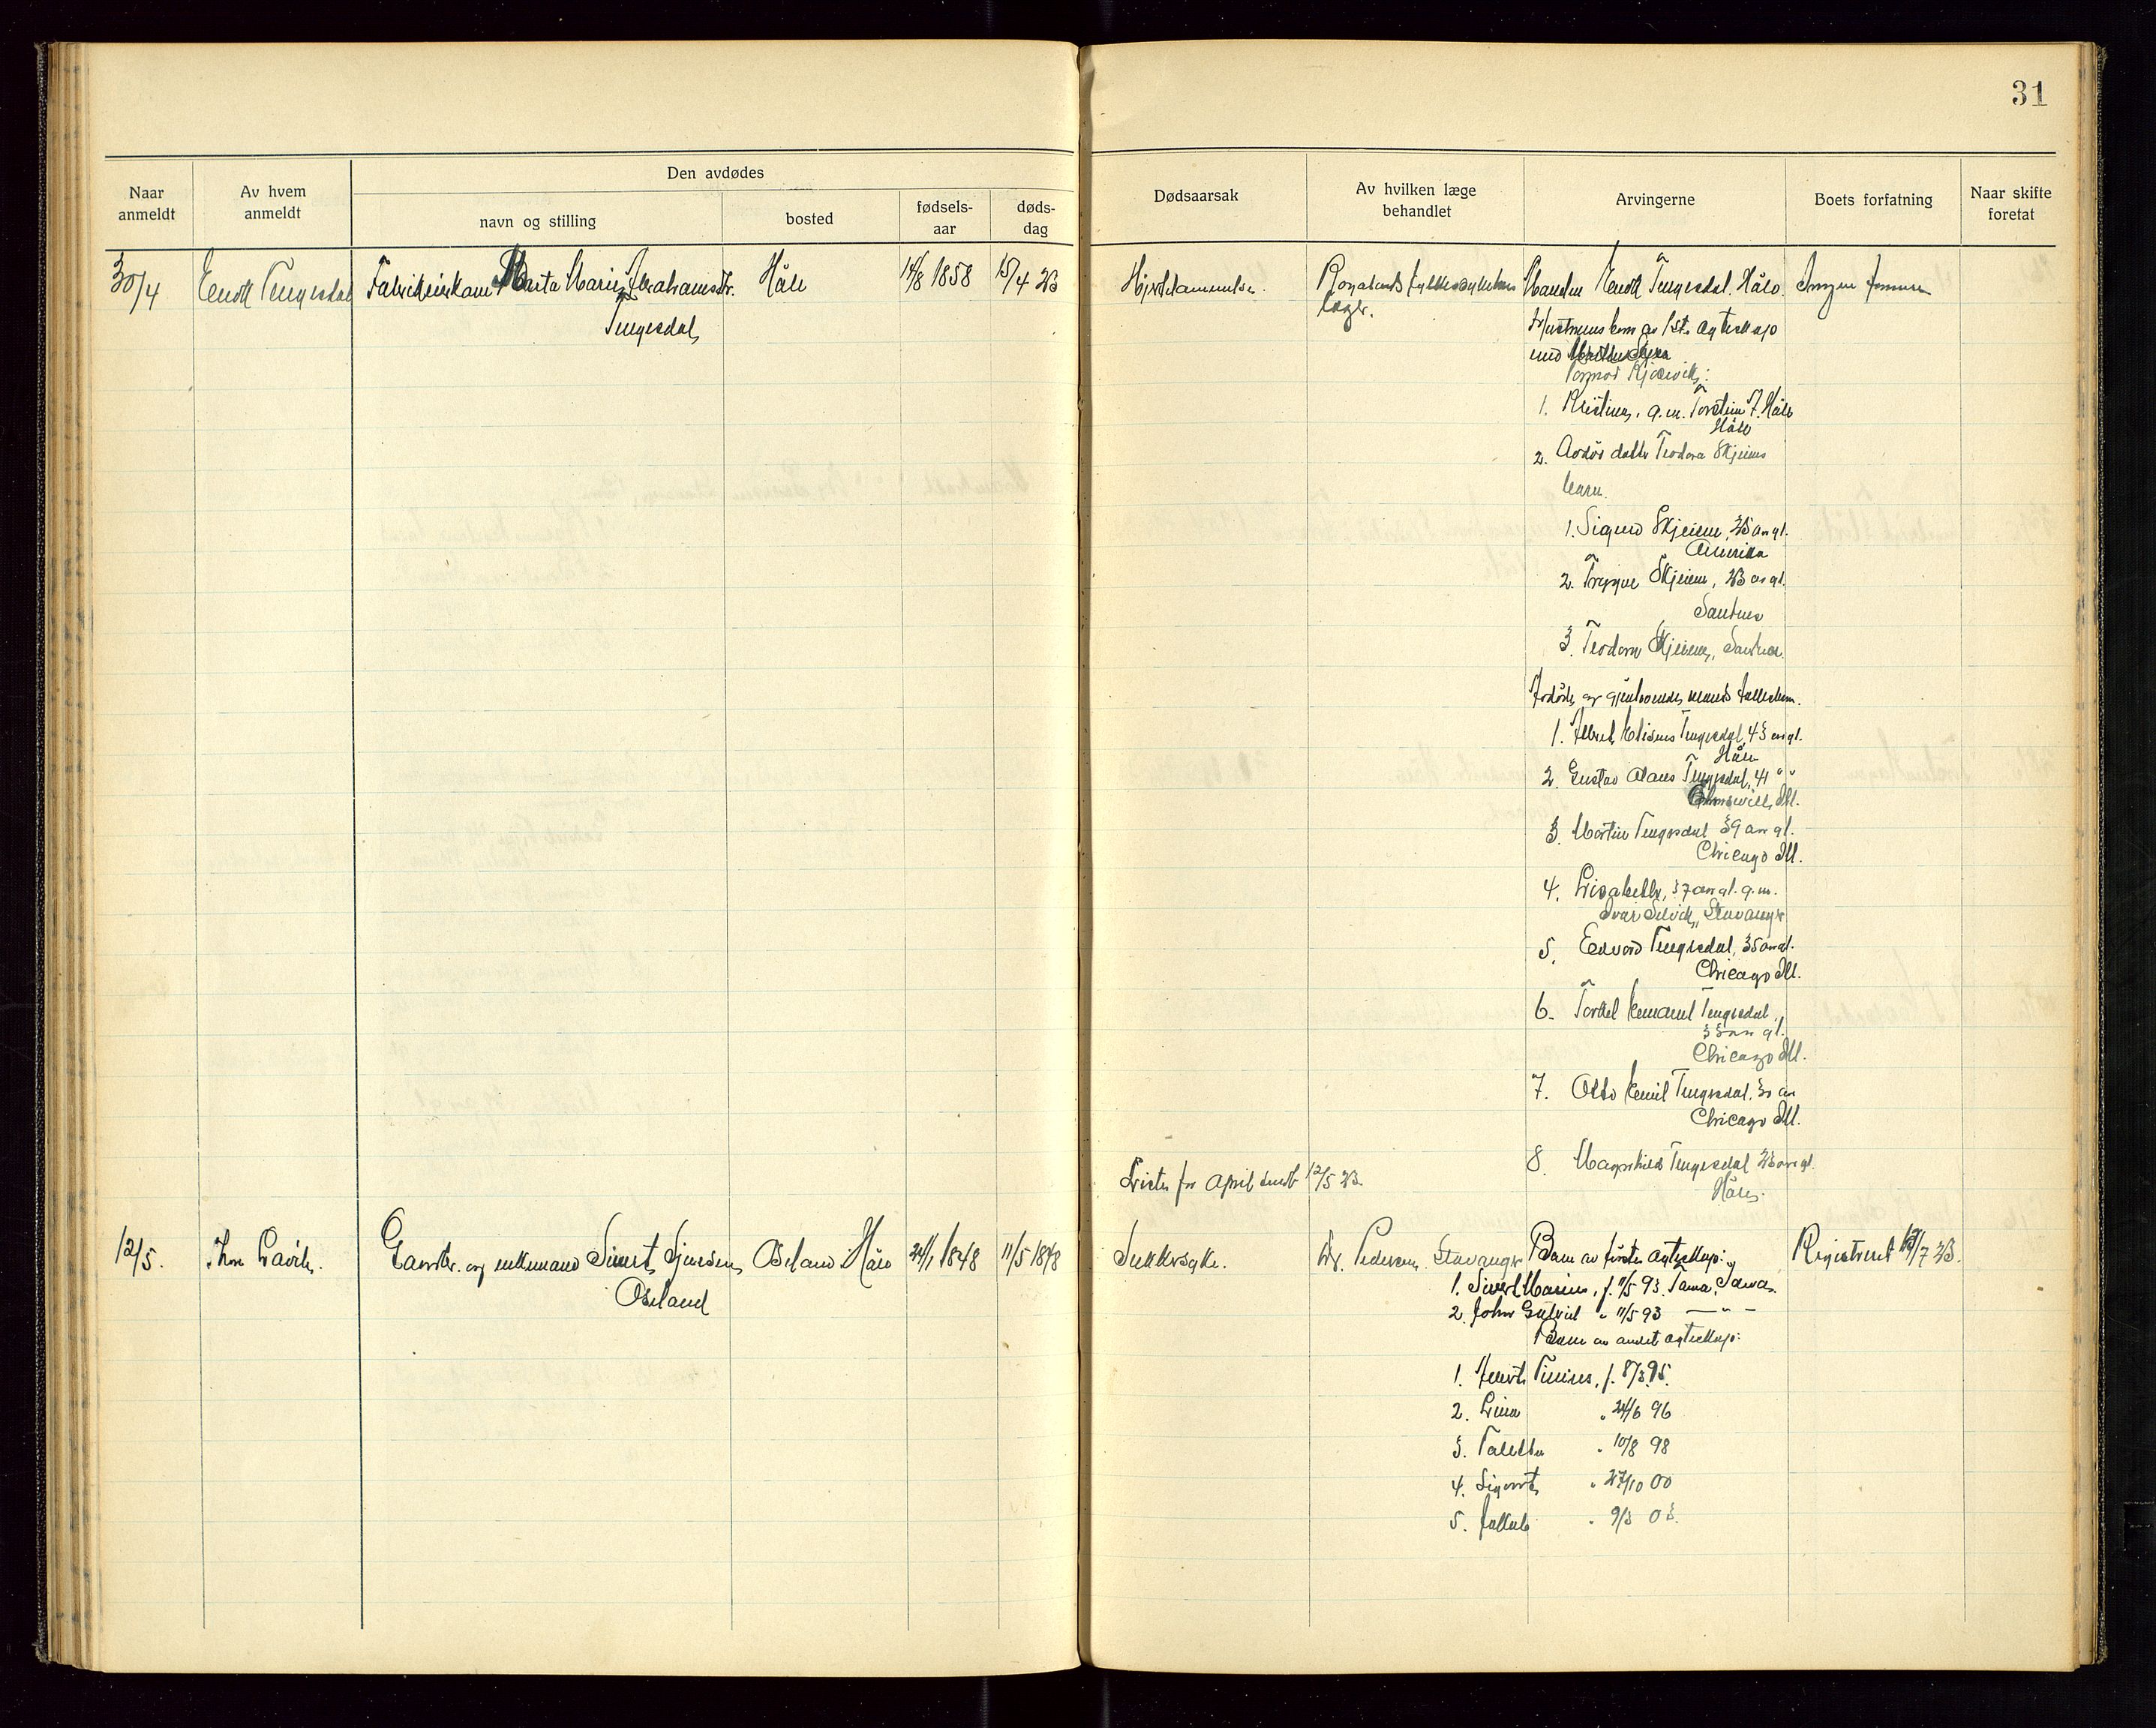 31
Naar anmeldt
Av hvem anmeldt
Den avdødes
navn og stilling
bosted
fødsels-aar
døds-dag
Dødsaarsak
Av hvilken læge behandlet
Arvingerne
Boets forfatning
Naar skifte foretat
30/4
Tengesdal
Marta Marie Abrahamsdtr.
Tengesdal
Håle
14/8 1858
15/4 23
Rogalands fylkessykehus
læger.
Manden Tengesdal. Håle.
Ingen formue
av 1ste ægteskap
med
1. Kristine, g.m. Torstein T. Håle
Håle
2. Avdød datter Teodora Skjeiens
barn.
1. Sigurd Skjeien, 25 år gl.
Amerika
2. Trygve Skjeien, 23 år gl.
Sandnes
3. Teodora Skjeien, Sandnes.
Avdøde og gjenlevende mands fellesbarn.
1. Tengesdal, 43 år gl.
Håle
2. Gustav Olaus Tengesdal, 41 " "
Ill.
3. Martin Tengesdal 39 år gl.
Chicago Ill.
4. Lisabeth, 37 år gl. g.m.
Ivar Selvik, Stavanger
5. Edvard Tengesdal, 35 år gl.
Chicago Ill.
6. Torkel Emanuel Tengesdal,
33 år gl.
Chicago Ill.
7. Otto Emil Tengesdal, 30 år
Chicago Ill.
8. Magnhild Tengesdal 23 år gl.
Håle.
Liste for April sendt 12/5 23.
12/5.
Gaardbr. og enkemand Sivert Sjursen
Øseland
Øseland i Håle
24/1 1848
11/5 1848
Sukkersyke.
Dr. Pedersen Stavanger
Barn av første ægteskap:
Registrert /7 23.
1. Sivert Marius, f. 11/5 93.
2. John Gabriel " 11/5 93 — " —
Barn av andet ægteskap:
1. Tines, f. 8/3 95.
2. Lina " 24/6 96
3. Talette " 10/8 98
4. Sigvart " 27/10 00
5. Jakob " 9/3 03.